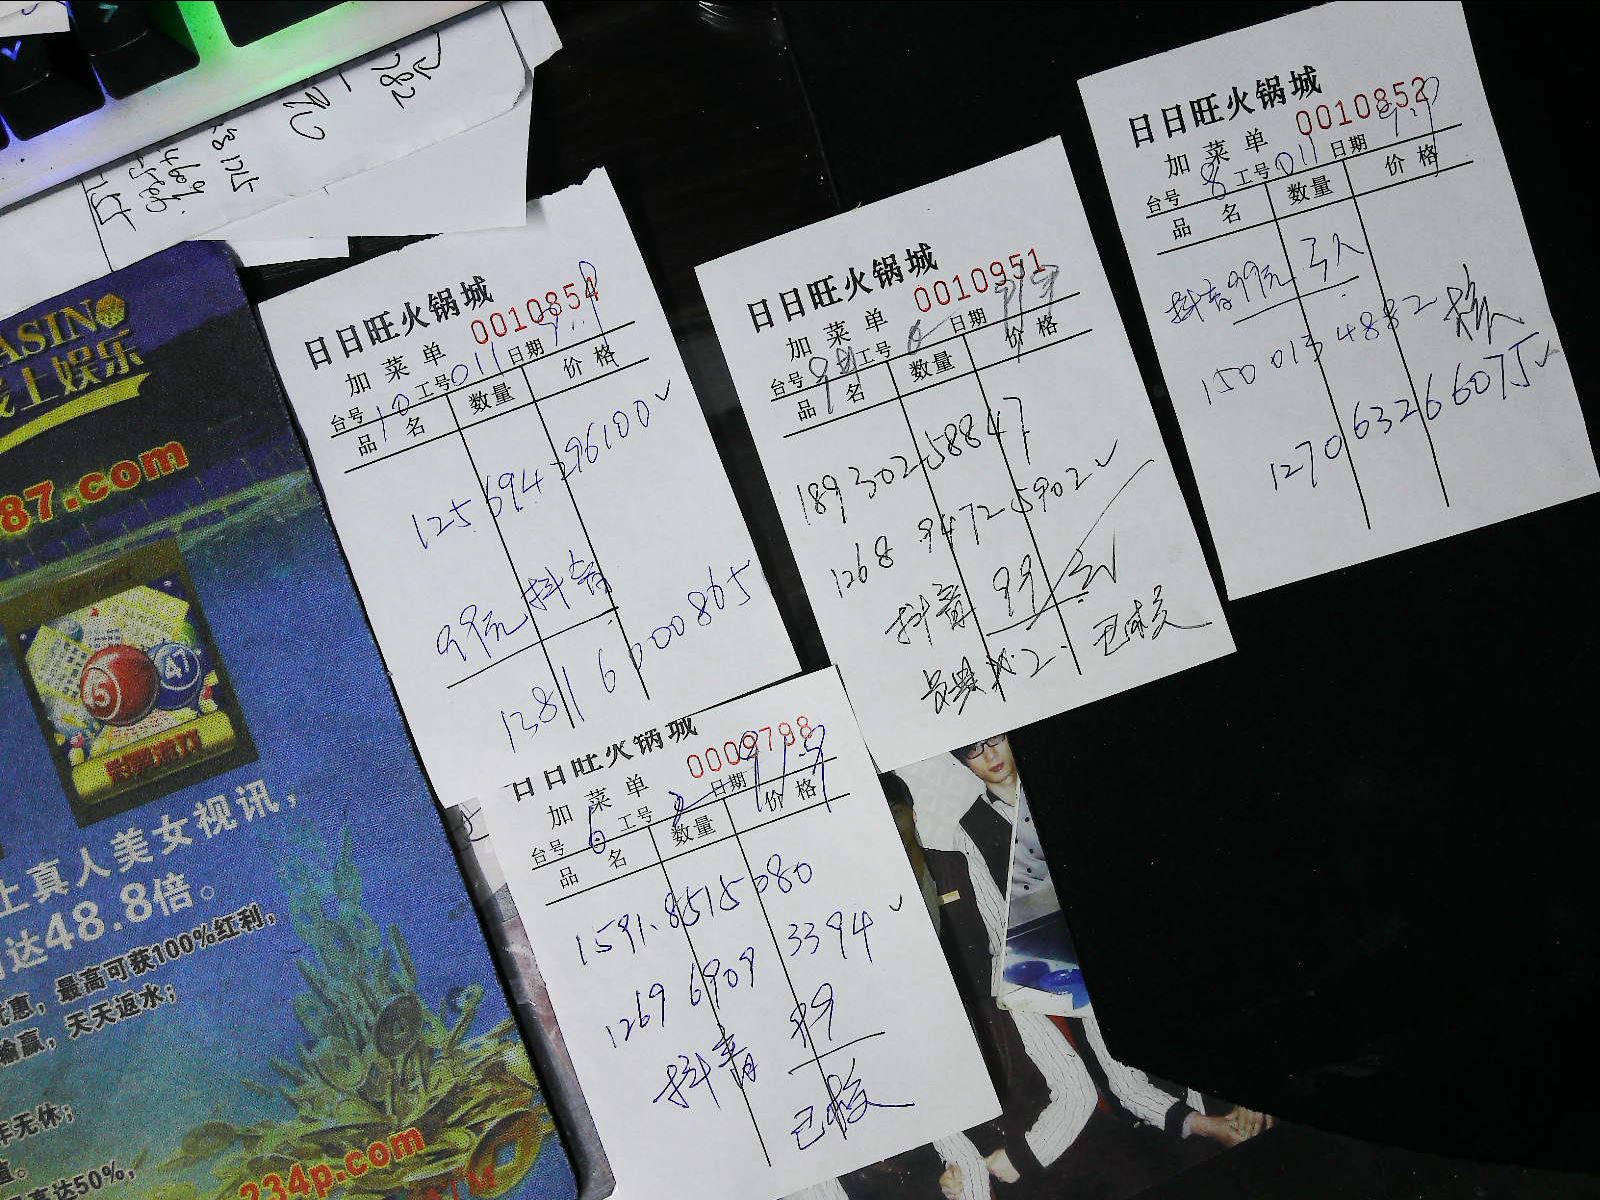 日日旺火锅城
0010854
加菜单
台号 10 工号 011 日期 9.9
品名 数量 价格
125 694 296100 ✓
99元 抖音
1381 6000865
日日旺火锅城
0010951
加菜单
台号 9 工号 日期 9.9
品名 数量 价格
189 302 58847
1268 9472 5902 ✓
抖音 99
2. 已核
日日旺火锅城
0010852
加菜单
台号 8 工号 011 日期 9.9
品名 数量 价格
抖音99元 3人
150 013 4882 核
1270 632 66075 ✓
日日旺火锅城
0009798
加菜单
台号 工号 2 日期 9.9
品名 数量 价格
1591.8515080
1269 6909 3394 ✓
抖音 99
已核
282
ASINO
线上娱乐
87.com
5
47
上真人美女视讯，
达48.8倍。
惠，最高可获100%红利，
输赢，天天返水；
年无休；
高达50%，
234p.com